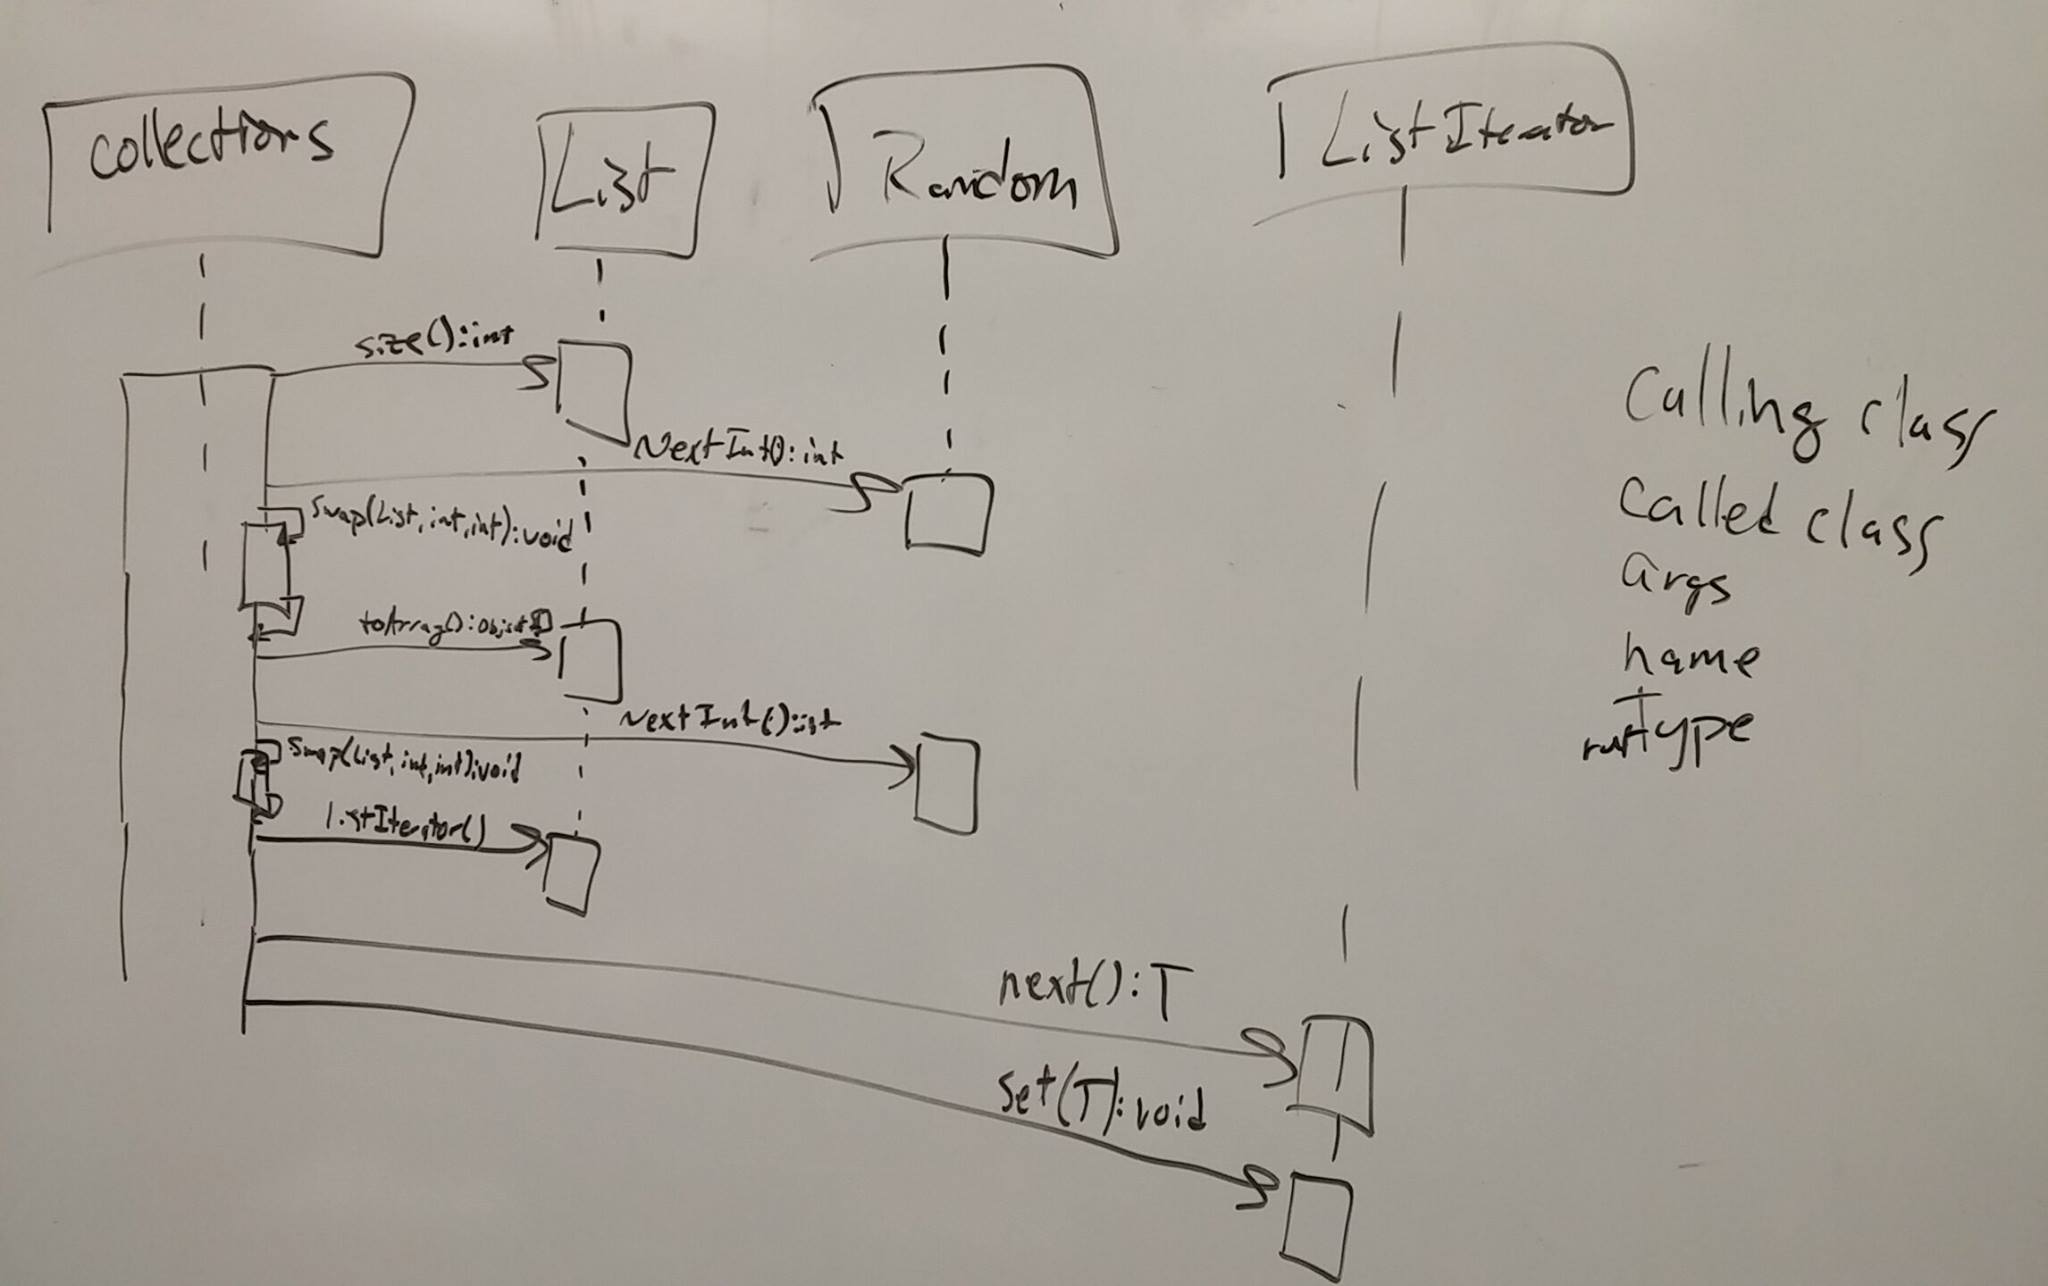 collections
List
Random
ListIterator
size():int
NextInt():int
swap(List, int, int):void
toArray():Object[]
NextInt():int
swap(List, int, int):void
listIterator()
next():T
set(T):void
Calling class
Called class
args
name
Type